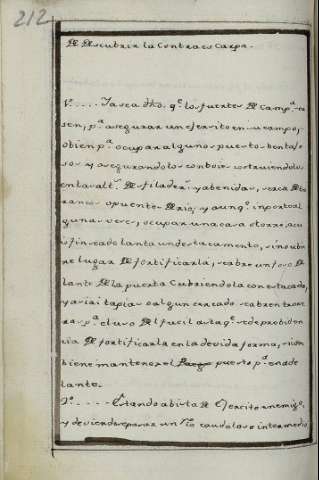 212
De Descubrir la Contraescarpa.
1º.... Ya se a dho. qe. los fuertes de Campa. se
sen, pa. asegurar un ejercito en su campo,
obien pa. ocupar algunos puestos bentajo
sos y asegurandolos conboies
en las alts. desfiladeros, y abenidas,
puente de rio; y aunqe. inportoal
guna vez, ocupar una casa o torre, a cu
io fin se adelanta un destacamento, si no ubie
re lugar de fortificarla, se abre un foso de
lante de la puerta Cubriendola con estacada,
y asi ai tapias o algun cercado se abren trone
ras pa. el uso del fucil asta qe. se de probiden
cia de fortificarla en la devida forma, si con
biene mantener el puesto pa. en ade
lante.
2º..... Estando abista de Ejercito enemigo,
y deviendo pasar un Rio caudaloso intermedio